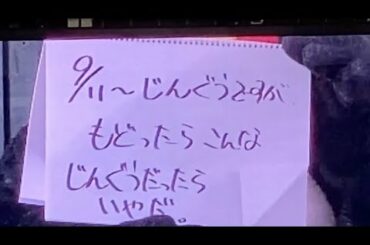 9/11〜じんぐうですが
もどったらこんな
じんぐうだったら
いやだ。